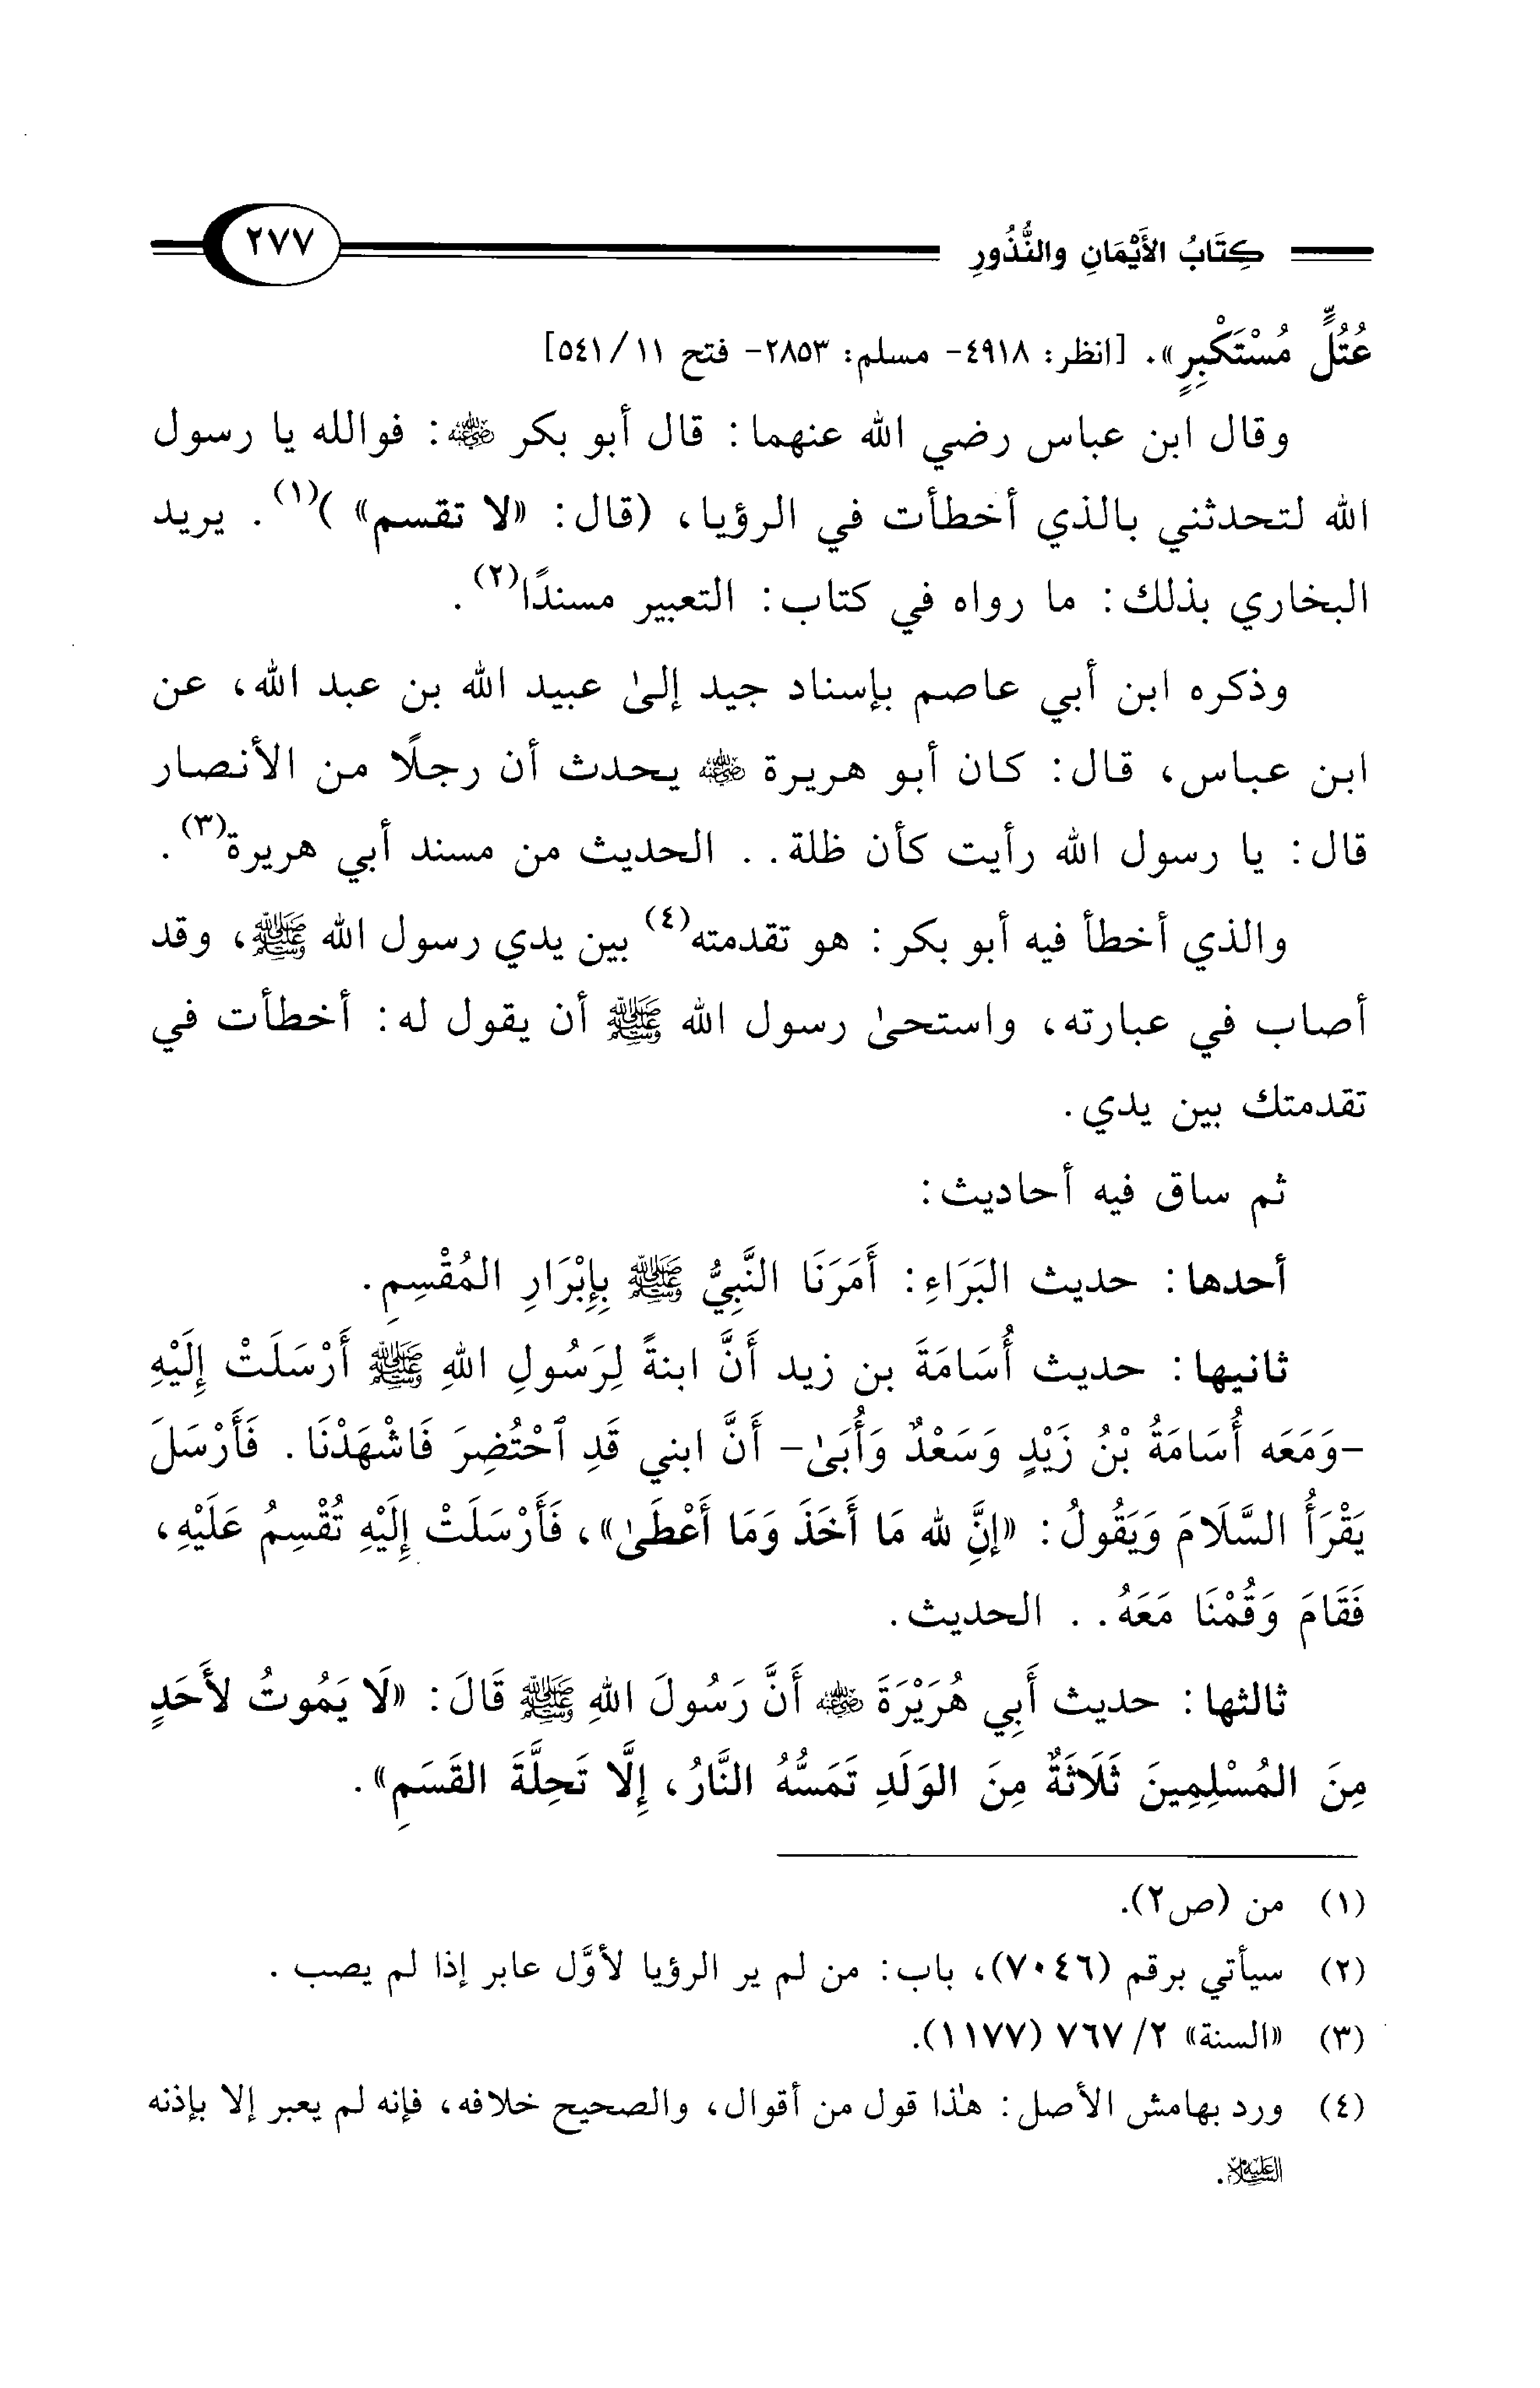 كِتَابُ الأَيْمَانِ والنُّذُورِ ٢٧٧
عُتُلٍّ مُسْتَكْبِرٍ». [انظر: ٤٩١٨- مسلم: ٢٨٥٣- فتح ١١/ ٥٤١]
وقال ابن عباس رضي الله عنهما: قال أبو بكر رضي الله عنه: فوالله يا رسول
الله لتحدثني بالذي أخطأت في الرؤيا، (قال: «لا تقسم» )(١). يريد
البخاري بذلك: ما رواه في كتاب: التعبير مسندًا(٢).
وذكره ابن أبي عاصم بإسناد جيد إلىٰ عبيد الله بن عبد الله، عن
ابن عباس، قال: كان أبو هريرة رضي الله عنه يحدث أن رجلًا من الأنصار
قال: يا رسول الله رأيت كأن ظلة.. الحديث من مسند أبي هريرة(٣).
والذي أخطأ فيه أبو بكر: هو تقدمته(٤) بين يدي رسول الله ﷺ، وقد
أصاب في عبارته، واستحىٰ رسول الله ﷺ أن يقول له: أخطأت في
تقدمتك بين يدي.
ثم ساق فيه أحاديث:
أحدها: حديث البَرَاءِ: أَمَرَنَا النَّبِيُّ ﷺ بِإِبْرَارِ المُقْسِمِ.
ثانيها: حديث أُسَامَةَ بن زيد أَنَّ ابنةً لِرَسُولِ اللهِ ﷺ أَرْسَلَتْ إِلَيْهِ
-وَمَعَه أُسَامَةُ بْنُ زَيْدٍ وَسَعْدٌ وَأُبَىٰ- أَنَّ ابني قَدِ ٱحْتُضِرَ فَاشْهَدْنَا. فَأَرْسَلَ
يَقْرَأُ السَّلَامَ وَيَقُولُ: «إنَّ لله مَا أَخَذَ وَمَا أَعْطَىٰ»، فَأَرْسَلَتْ إِلَيْهِ تُقْسِمُ عَلَيْهِ،
فَقَامَ وَقُمْنَا مَعَهُ.. الحديث.
ثالثها: حديث أَبِي هُرَيْرَةَ رضي الله عنه أَنَّ رَسُولَ اللهِ ﷺ قَالَ: «لَا يَمُوتُ لأَحَدٍ
مِنَ المُسْلِمِينَ ثَلَاثَةٌ مِنَ الوَلَدِ تَمَسُّهُ النَّارُ، إِلَّا تَحِلَّةَ القَسَمِ».
(١) من (ص٢).
(٢) سيأتي برقم (٧٠٤٦)، باب: من لم ير الرؤيا لأوَّل عابر إذا لم يصب.
(٣) «السنة» ٢/ ٧٦٧ (١١٧٧).
(٤) ورد بهامش الأصل: هٰذا قول من أقوال، والصحيح خلافه، فإنه لم يعبر إلا بإذنه
عليه السلام.